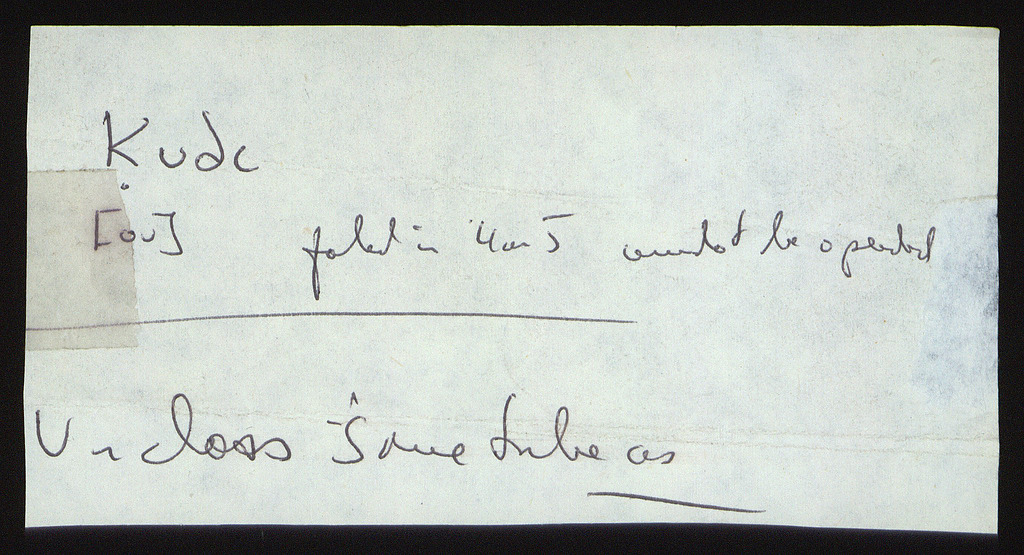 Kude
[ou] folded in 4 or 5 cannot be opened
Un class Same tribe as